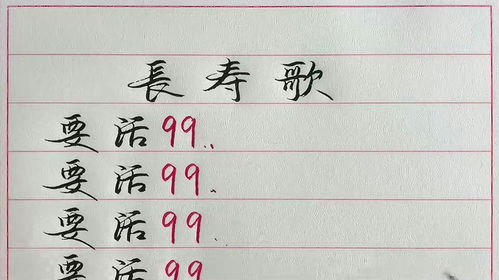 長寿歌
要活99..
要活99.
要活99.
要活99